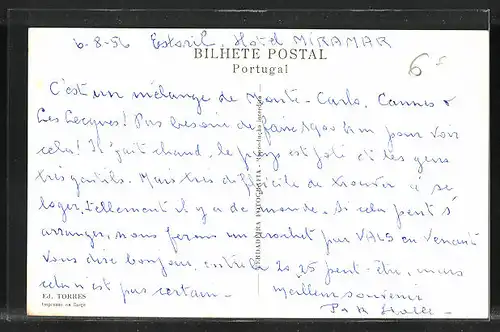 6-8-56 Estoril, Hotel MIRAMAR
BILHETE POSTAL
Portugal
6
C'est un mélange de Monte-Carlo, Cannes &
Les Lecques! Pas besoin de faire 1900 km pour voir
cela! Il fait chaud, le pays est joli et les gens
très gentils. Mais très difficile de trouver à se
loger, tellement il y a de monde. Si cela peut s'
arranger, nous ferons un crochet par VALS en venant
vous dire bonjour, entre le 20 25 peut-être, mais
cela n'est pas certain.
meilleur souvenir
VERDADEIRA FOTOGRAFIA - Reprodução interdita
Ed. TORRES